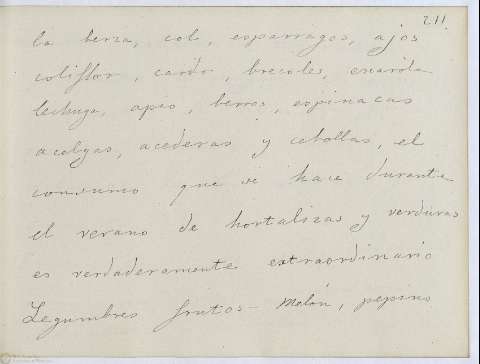 211
la berza, col, esparragos, ajos
coliflor, cardo, brecoles, escarola
lechuga, apio, berros, espinacas
acelgas, acederas y cebollas, el
consumo que se hace durante
el verano de hortalizas y verduras
es verdaderamente extraordinario
Legumbres frutos - Melón, pepino